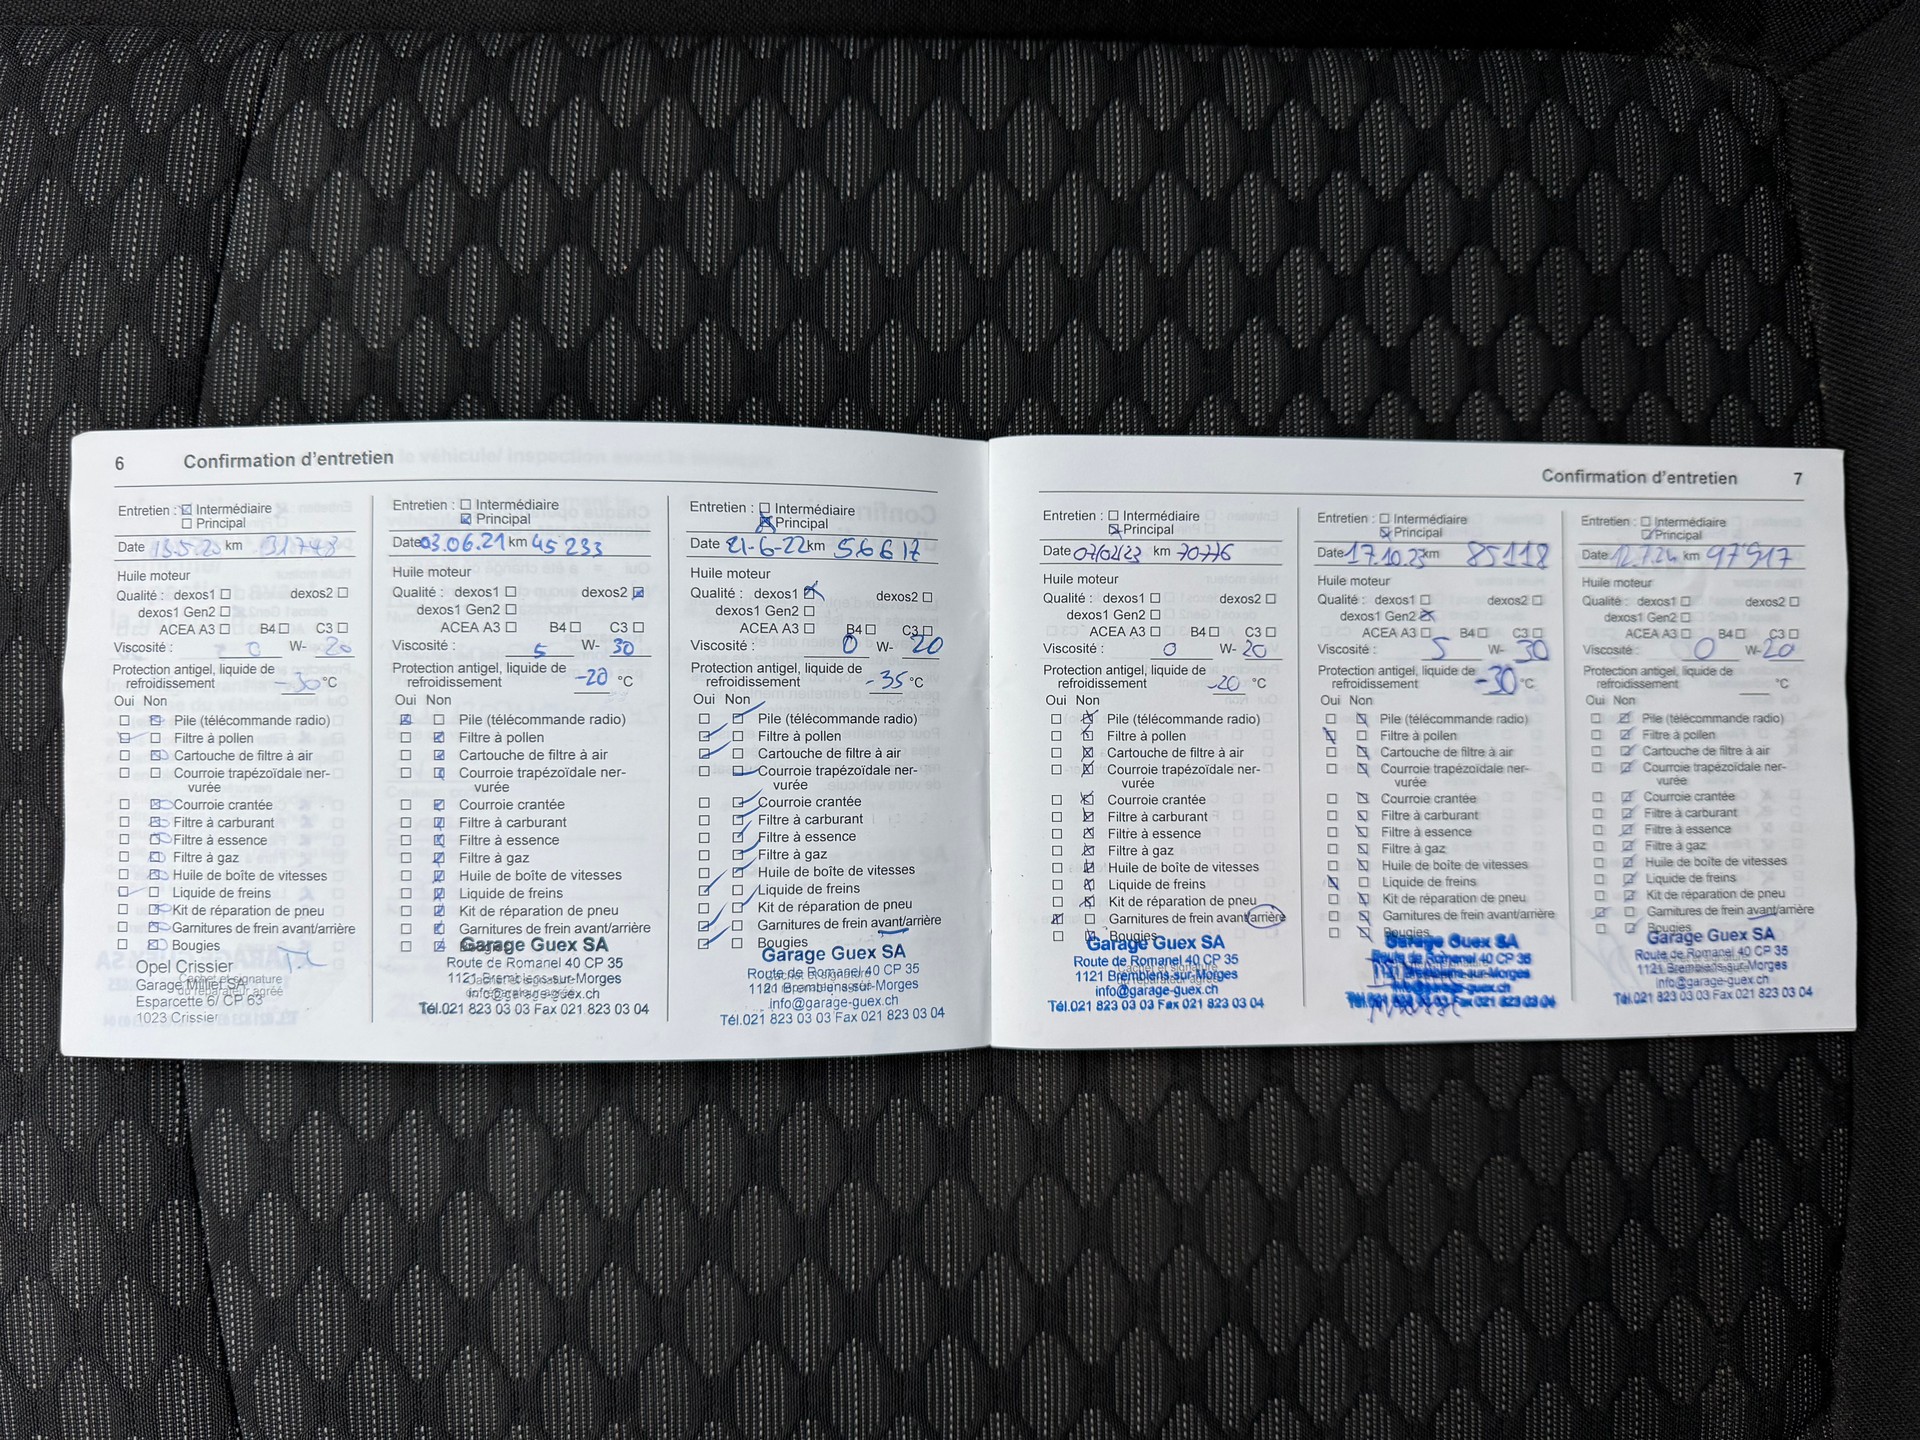 6 Confirmation d'entretien
Entretien : Intermédiaire
Principal
Date 13.5.20 km 31748
Huile moteur
Qualité : dexos1 dexos2
dexos1 Gen2
ACEA A3 B4 C3
Viscosité : 0 W- 20
Protection antigel, liquide de
refroidissement -30 °C
Oui Non
Pile (télécommande radio)
Filtre à pollen
Cartouche de filtre à air
Courroie trapézoïdale ner-
vurée
Courroie crantée
Filtre à carburant
Filtre à essence
Filtre à gaz
Huile de boîte de vitesses
Liquide de freins
Kit de réparation de pneu
Garnitures de frein avant/arrière
Bougies
Opel Crissier
Cachet et signature
Garage Milliet SA
du réparateur agréé
Esparcette 6/ CP 63
1023 Crissier
Entretien : Intermédiaire
Principal
Date 03.06.21 km 45 233
Huile moteur
Qualité : dexos1 dexos2
dexos1 Gen2
ACEA A3 B4 C3
Viscosité : 5 W- 30
Protection antigel, liquide de
refroidissement -20 °C
Oui Non
Pile (télécommande radio)
Filtre à pollen
Cartouche de filtre à air
Courroie trapézoïdale ner-
vurée
Courroie crantée
Filtre à carburant
Filtre à essence
Filtre à gaz
Huile de boîte de vitesses
Liquide de freins
Kit de réparation de pneu
Garnitures de frein avant/arrière
Bougies
Garage Guex SA
Route de Romanel 40 CP 35
1121 Bremblens-sur-Morges
Cachet et signature
info@garage-guex.ch
Tél.021 823 03 03 Fax 021 823 03 04
Entretien : Intermédiaire
Principal
Date 21-6-22 km 56617
Huile moteur
Qualité : dexos1 dexos2
dexos1 Gen2
ACEA A3 B4 C3
Viscosité : 0 W- 20
Protection antigel, liquide de
refroidissement -35 °C
Oui Non
Pile (télécommande radio)
Filtre à pollen
Cartouche de filtre à air
Courroie trapézoïdale ner-
vurée
Courroie crantée
Filtre à carburant
Filtre à essence
Filtre à gaz
Huile de boîte de vitesses
Liquide de freins
Kit de réparation de pneu
Garnitures de frein avant/arrière
Bougies
Garage Guex SA
Route de Romanel 40 CP 35
1121 Bremblens-sur-Morges
info@garage-guex.ch
Tél.021 823 03 03 Fax 021 823 03 04
Confirmation d'entretien 7
Entretien : Intermédiaire
Principal
Date 07/02/23 km 70776
Huile moteur
Qualité : dexos1 dexos2
dexos1 Gen2
ACEA A3 B4 C3
Viscosité : 0 W- 20
Protection antigel, liquide de
refroidissement -20 °C
Oui Non
Pile (télécommande radio)
Filtre à pollen
Cartouche de filtre à air
Courroie trapézoïdale ner-
vurée
Courroie crantée
Filtre à carburant
Filtre à essence
Filtre à gaz
Huile de boîte de vitesses
Liquide de freins
Kit de réparation de pneu
Garnitures de frein avant/arrière
Bougies
Garage Guex SA
Route de Romanel 40 CP 35
1121 Bremblens-sur-Morges
info@garage-guex.ch
Tél.021 823 03 03 Fax 021 823 03 04
Entretien : Intermédiaire
Principal
Date 17.10.23 km 85118
Huile moteur
Qualité : dexos1 dexos2
dexos1 Gen2
ACEA A3 B4 C3
Viscosité : 5 W- 30
Protection antigel, liquide de
refroidissement -30 °C
Oui Non
Pile (télécommande radio)
Filtre à pollen
Cartouche de filtre à air
Courroie trapézoïdale ner-
vurée
Courroie crantée
Filtre à carburant
Filtre à essence
Filtre à gaz
Huile de boîte de vitesses
Liquide de freins
Kit de réparation de pneu
Garnitures de frein avant/arrière
Bougies
Garage Guex SA
Route de Romanel 40 CP 35
1121 Bremblens-sur-Morges
info@garage-guex.ch
Tél.021 823 03 03 Fax 021 823 03 04
Entretien : Intermédiaire
Principal
Date 12.7.24 km 97917
Huile moteur
Qualité : dexos1 dexos2
dexos1 Gen2
ACEA A3 B4 C3
Viscosité : 0 W- 20
Protection antigel, liquide de
refroidissement °C
Oui Non
Pile (télécommande radio)
Filtre à pollen
Cartouche de filtre à air
Courroie trapézoïdale ner-
vurée
Courroie crantée
Filtre à carburant
Filtre à essence
Filtre à gaz
Huile de boîte de vitesses
Liquide de freins
Kit de réparation de pneu
Garnitures de frein avant/arrière
Bougies
Garage Guex SA
Route de Romanel 40 CP 35
1121 Bremblens-sur-Morges
info@garage-guex.ch
Tél.021 823 03 03 Fax 021 823 03 04